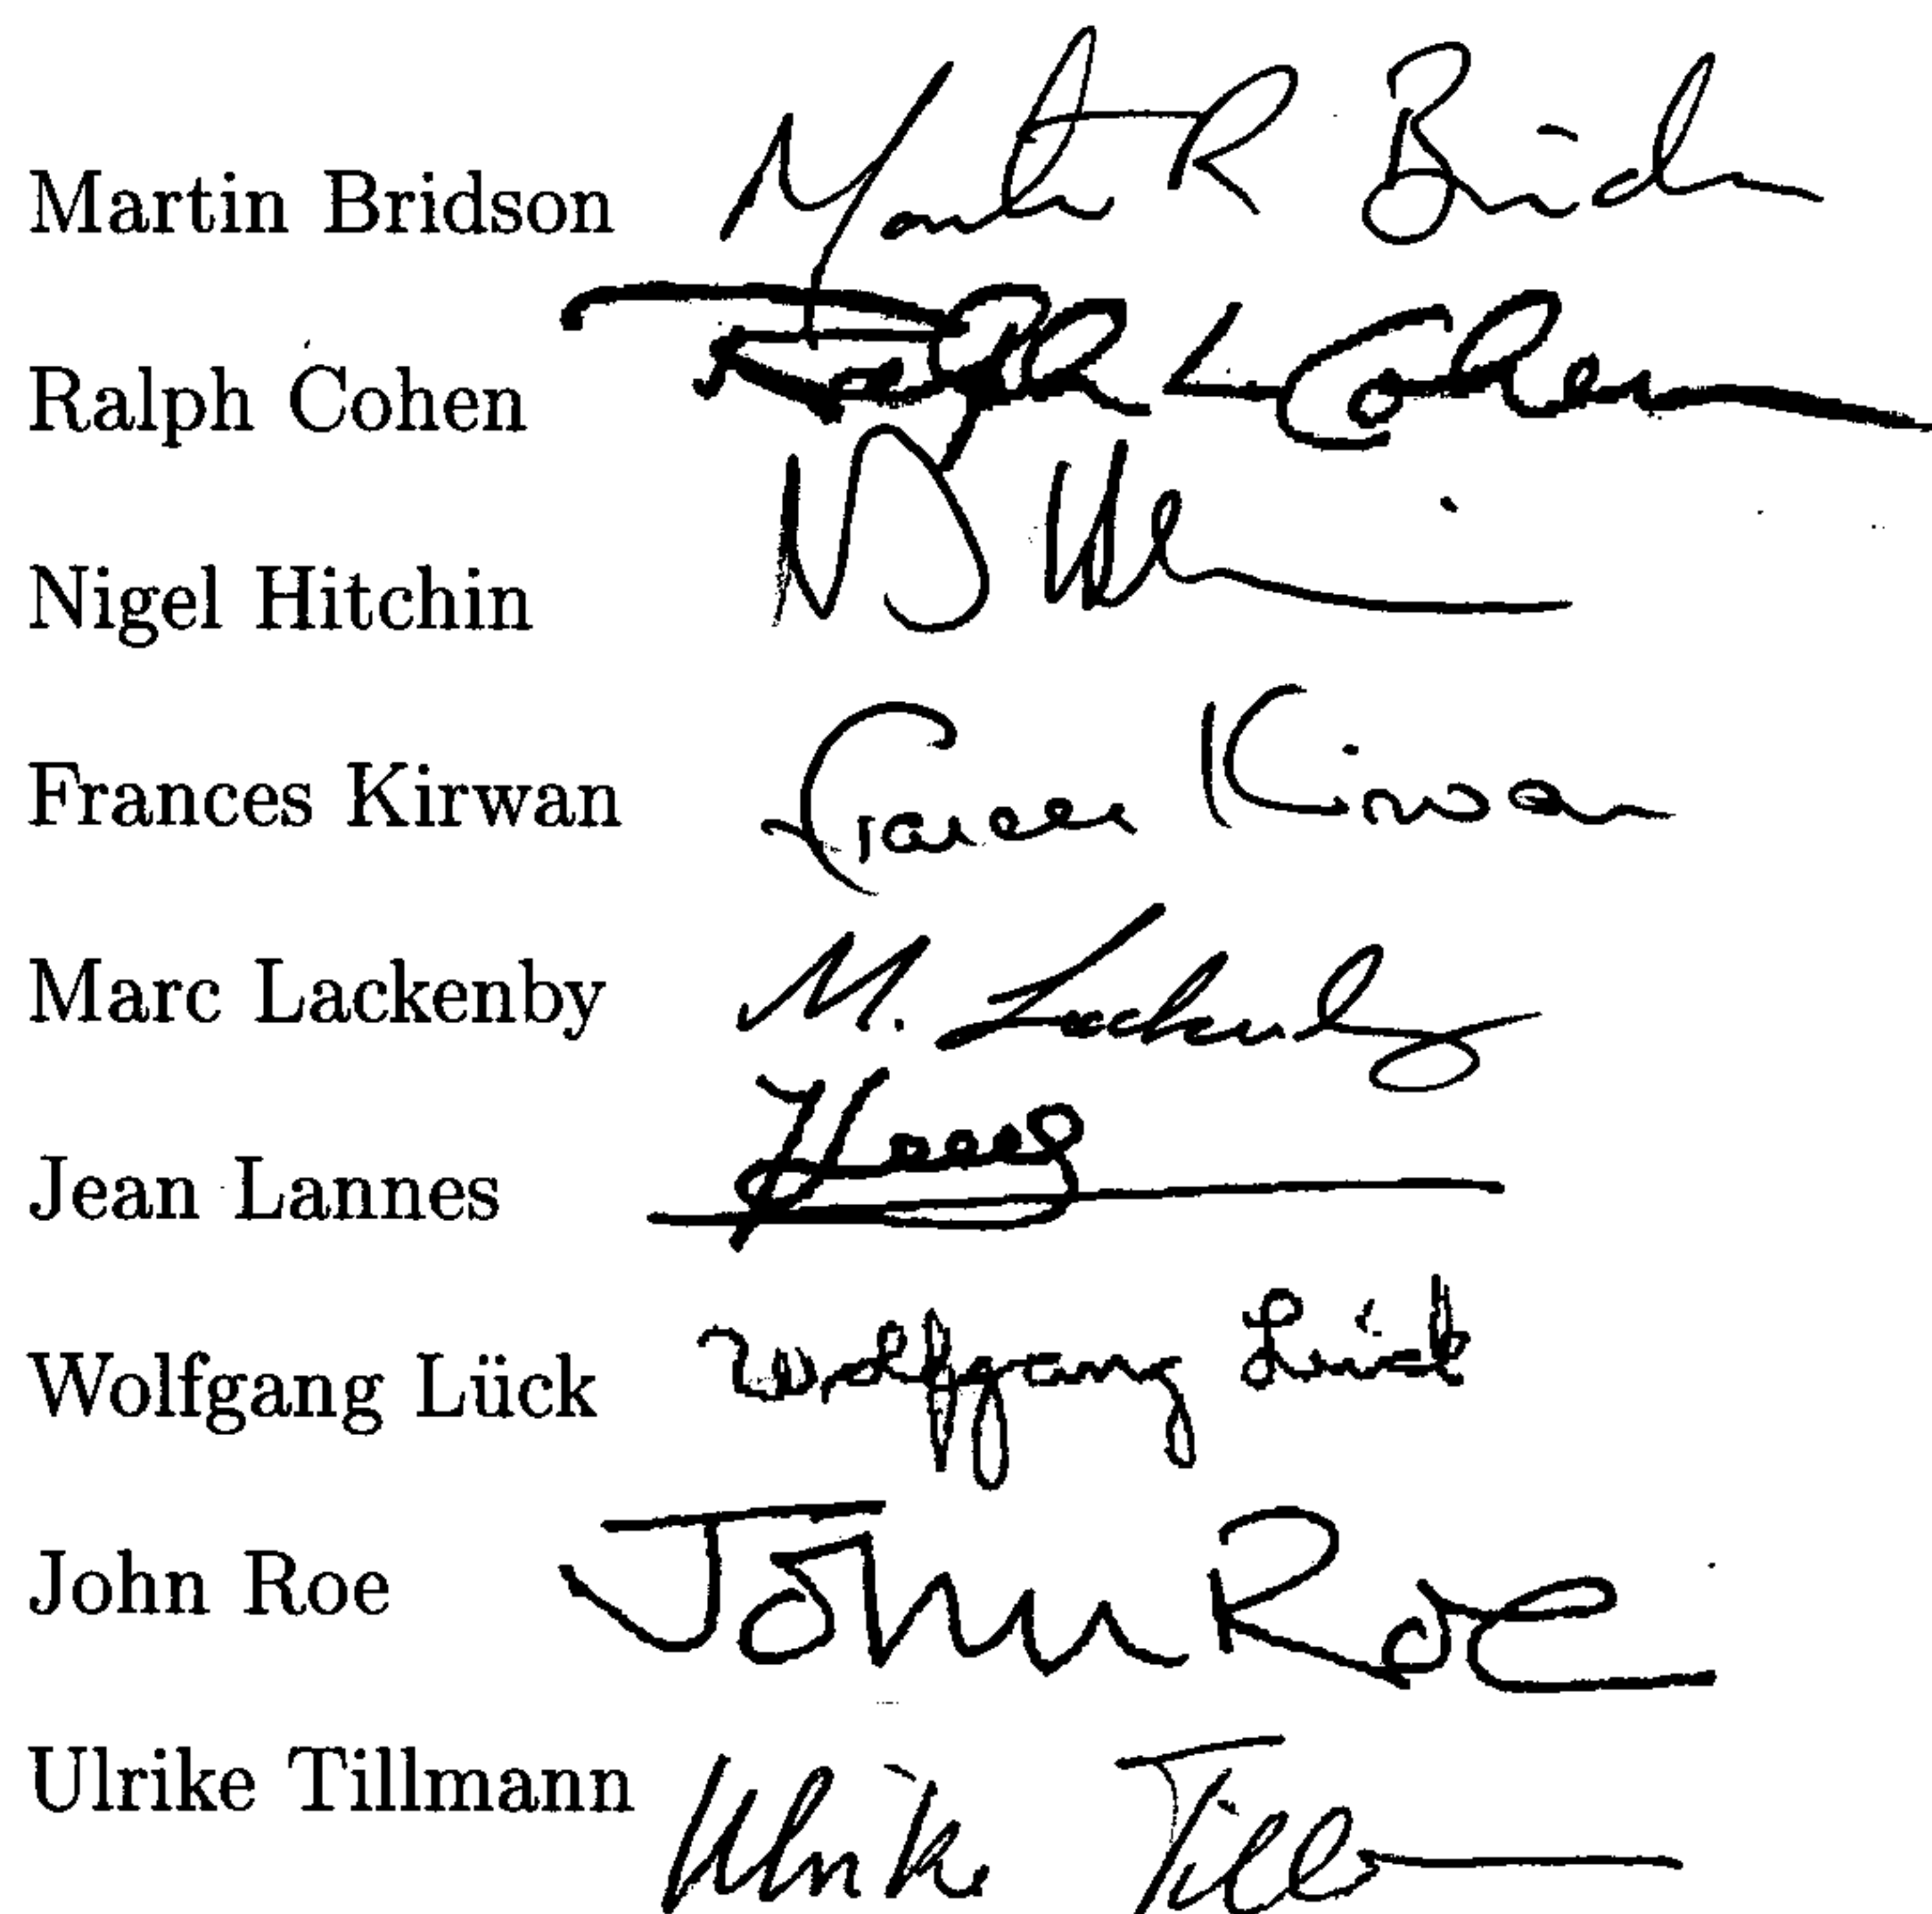 Martin Bridson Martin R Bridson
Ralph Cohen Ralph L. Cohen
Nigel Hitchin
Frances Kirwan Frances Kirwan
Marc Lackenby M. Lackenby
Jean Lannes
Wolfgang Lück Wolfgang Lück
John Roe John Roe
Ulrike Tillmann Ulrike Till